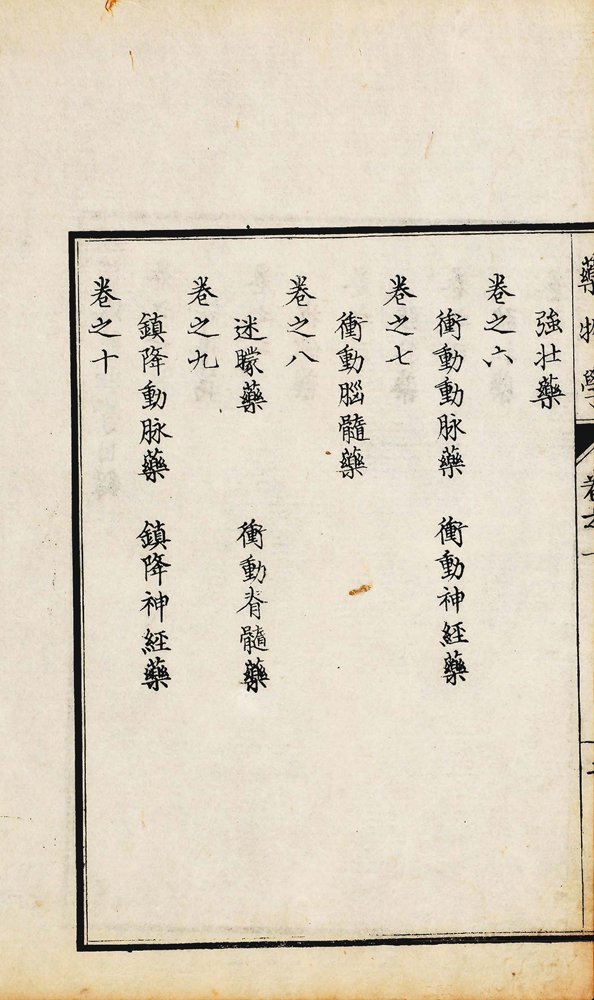 藥物學
卷之一
強壯藥
卷之六
衝動動脉藥　衝動神經藥
卷之七
衝動腦髓藥
卷之八
迷矇藥　衝動脊髓藥
卷之九
鎮降動脉藥　鎮降神經藥
卷之十